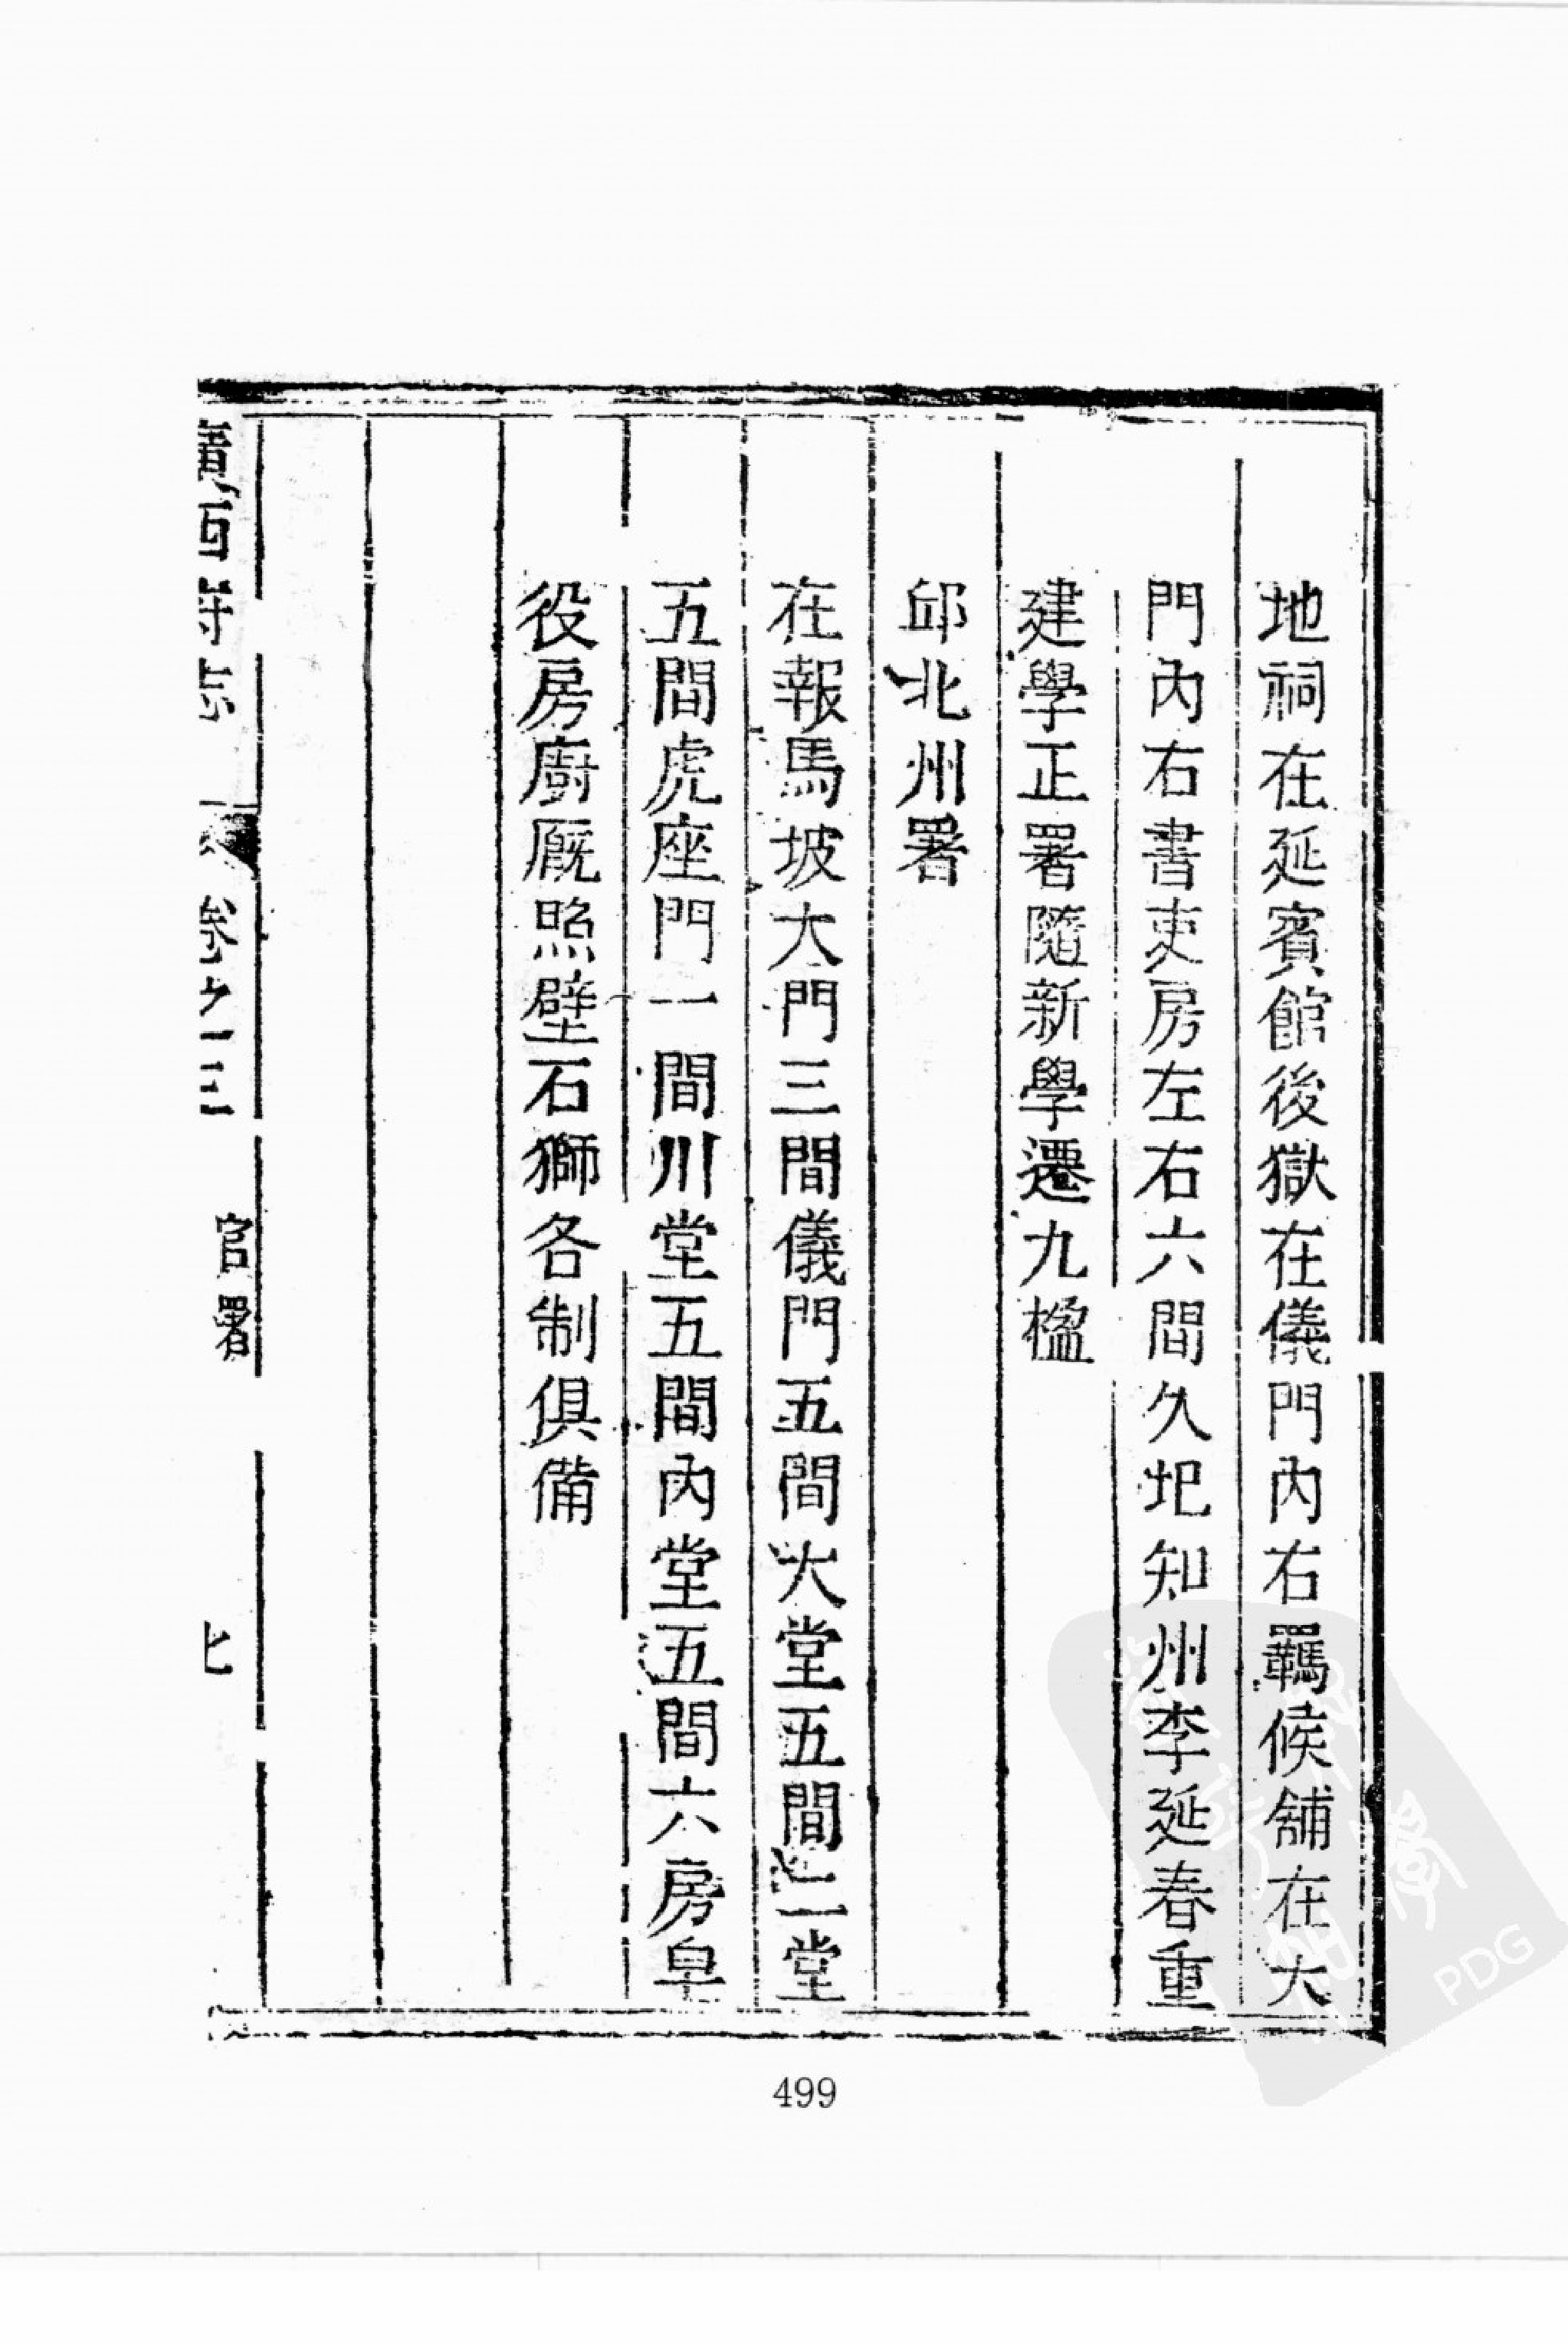 地祠在延賓館後獄在儀門內右羈候舖在大
門內右書吏房左右六間久圯知州李延春重
建學正署隨新學遷九楹
邱北州署
在報馬坡大門三間儀門五間大堂五間二堂
五間虎座門一間川堂五間內堂五間六房皁
役房廚厩照壁石獅各制俱備
廣西府志 卷之三 官署 七
499
PDG